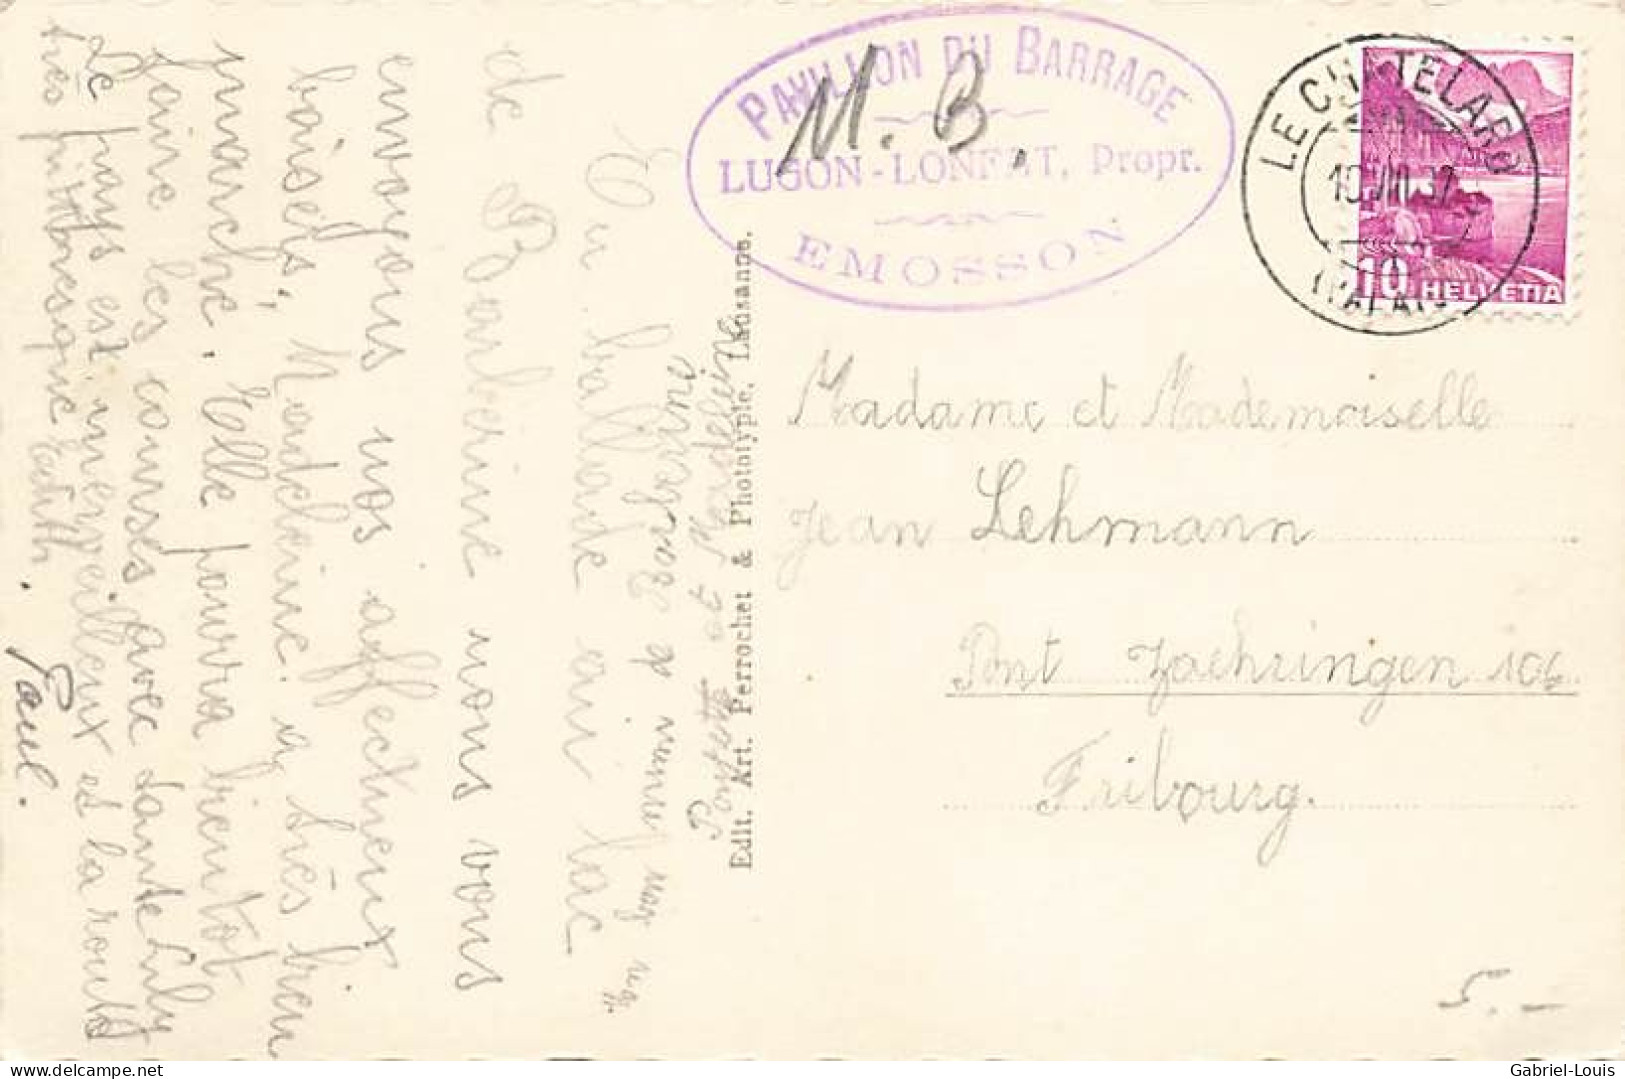 PAVILLON DU BARRAGE
LUGON-LONFAT, Propr.
EMOSSON
M. B.
LE CHÂTELARD
(VALAIS)
10 HELVETIA
Madame et Mademoiselle
Jean Lehmann
Pont Zaehringen 106
Fribourg.
5.-
Edit. Art. Perrochet & Phototypie. Lausanne.
En ballade au lac
de Barberine nous vous
envoyons nos affectueux
baisers, Madeleine a très bien
marché. Elle pourra bientôt
faire les courses avec tante Luly
Le pays est merveilleux et la route
très pittoresque Edith.
Paul.
Gabriel-Louis